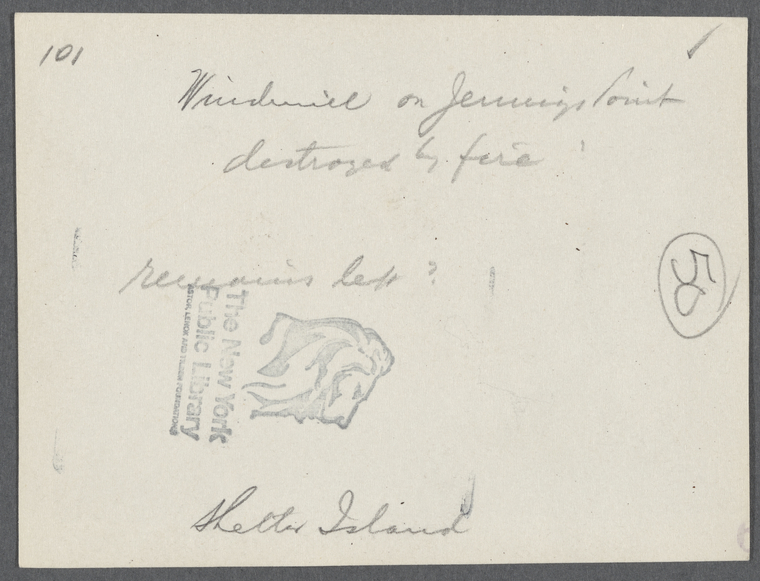 101
Windmill on Jennings Point
destroyed by fire
remains left?
50
The New York
Public Library
ASTOR LENOX AND TILDEN FOUNDATIONS
Shelter Island